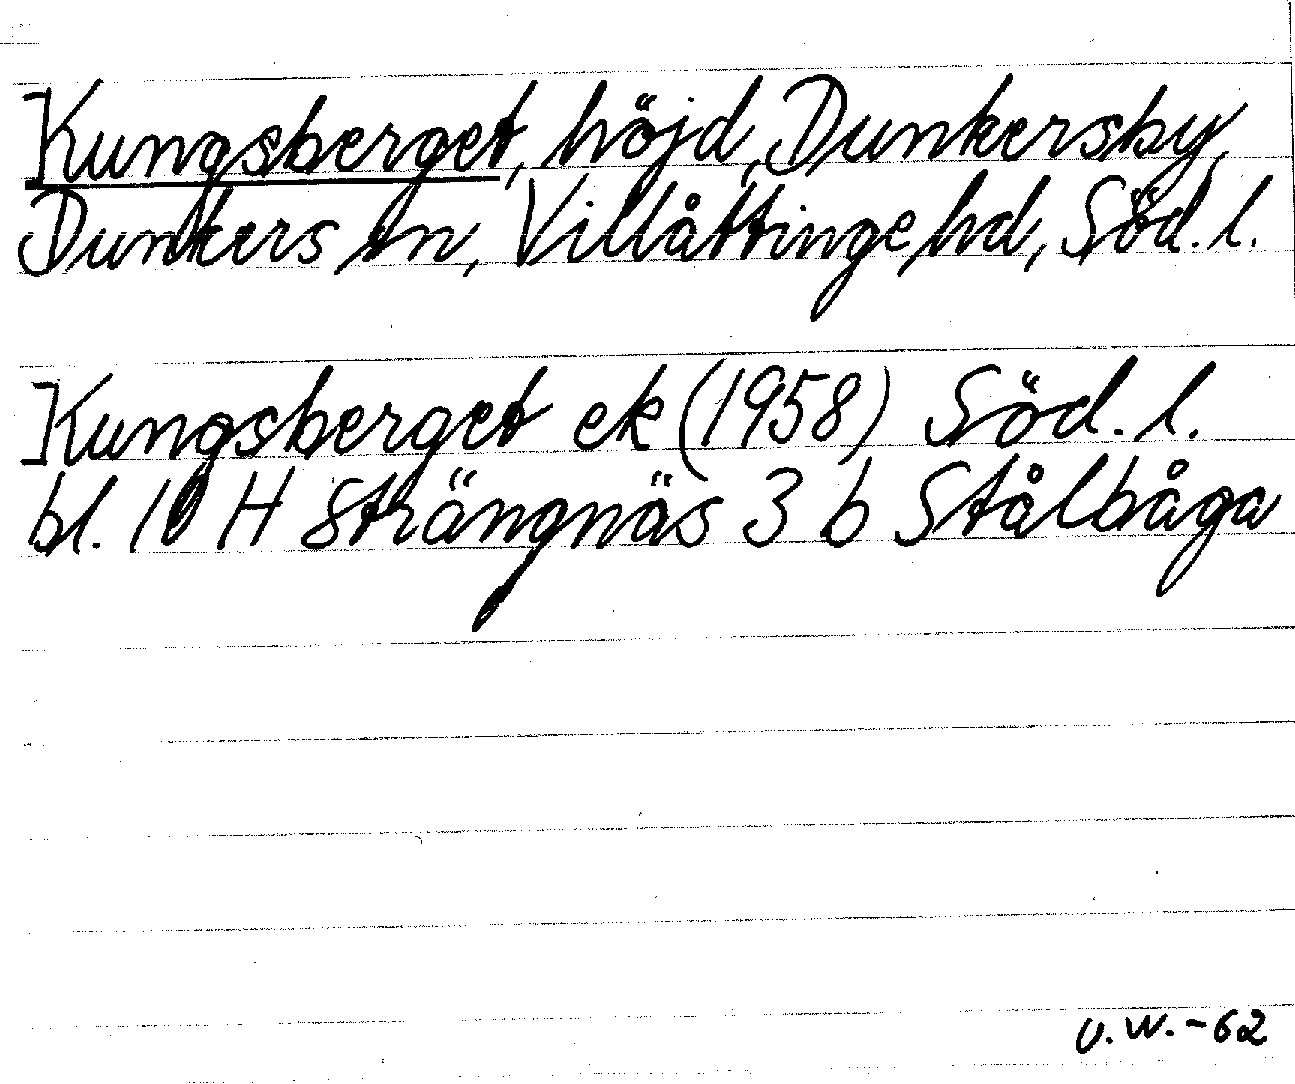 Kungsberget, höjd, Dunkersby,
Dunkers sn, Villåttinge hd, Söd. l.
Kungsberget ek (1958) Söd. l.
bl. 10 H Strängnäs 3 b Stålbåga
U.W.-62